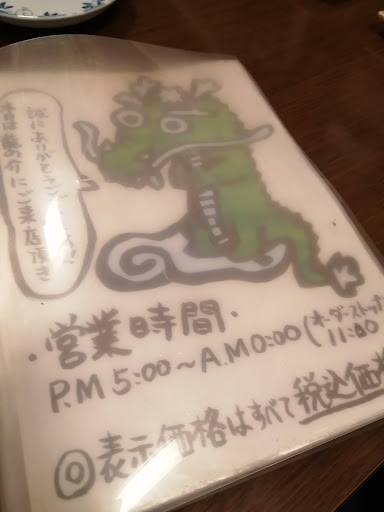 本日は龍の介にご来店頂き
誠にありがとうございます
・営業時間・
P.M 5:00〜A.M 0:00 (オーダーストップ
11:00
◎表示価格はすべて税込価格